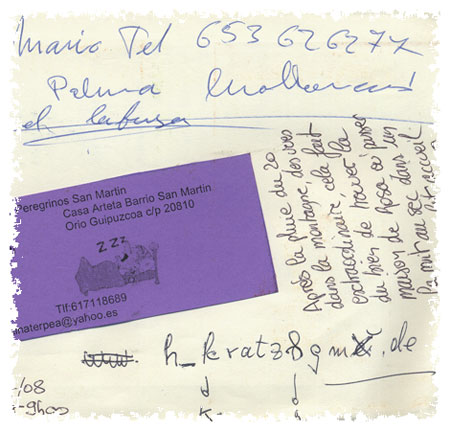 Mario Tel 653 626277
Palma Mallorca
el
Peregrinos San Martin
Casa Arteta Barrio San Martin
Orio Guipuzcoa c/p 20810
zzz
Tlf:617118689
naterpea@yahoo.es
Après la pluie du 20
dans la montagne cela fait
extraordinaire trouver la
du bien de Rosa où passer
maison
la nuit au sec dans un
h_kratz8gmx.de
k
/08
-9h00